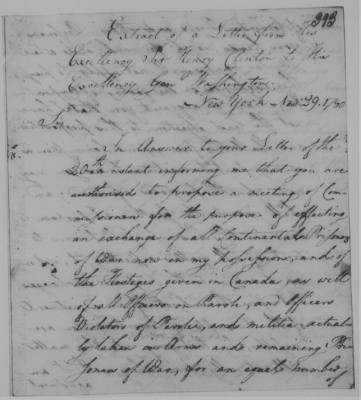 393
Extract of a Letter from His
Excellency Sir Henry Clinton to His
Excellency Genl Washington.
New York Nov 29. 1780
Sir
In Answer to your Letter of the
instant informing me that you are
authorised to propose a meeting of Com
missioners for the purpose of effecting
an exchange of all Continental Prisoners
of War now in my possession, and of
the Hostages given in Canada, as well
of all Officers on Parole, and Officers
Violators of Parole, and militia actual
ly taken in Arms and remaining Pri
soners of War, for an equal number of